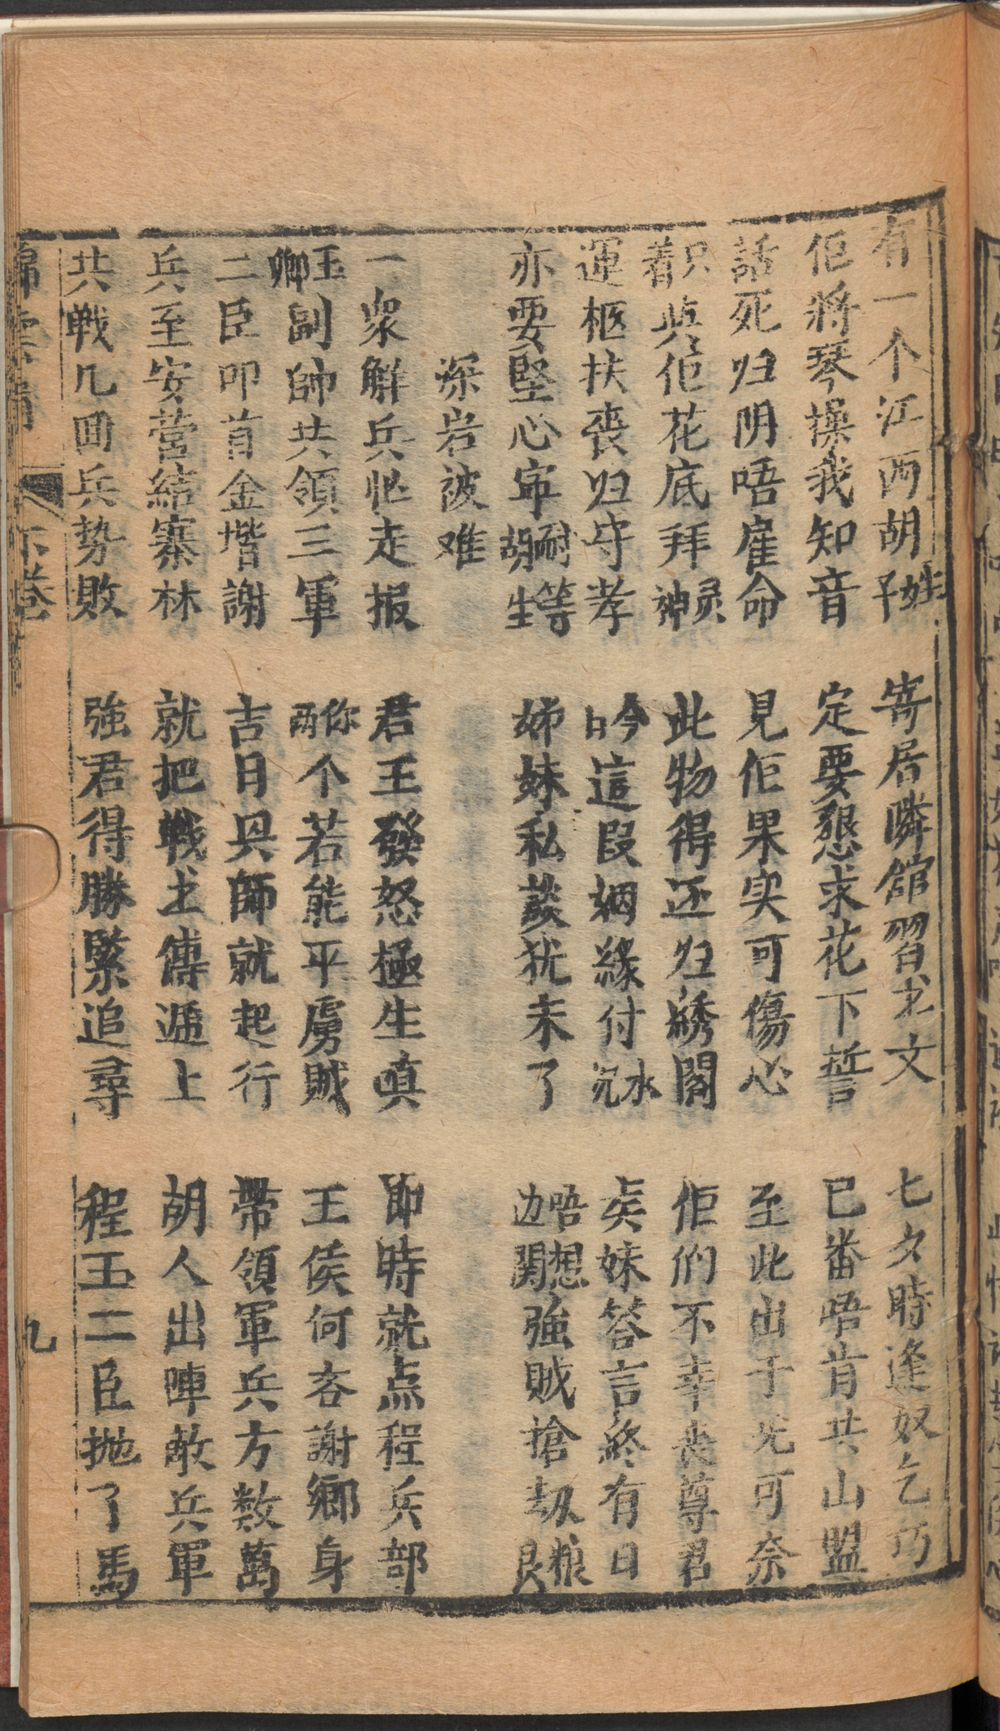 有一个江西胡姓子　寄居隣舘習书文　七夕時逢奴乞巧
佢將琴操我知音　定要懇求花下誓　已番唔肯共山盟
話死归阴唔雇命　見佢果实可傷心　至此出于无可奈
只着與佢花底拜灵神　此物得还归綉閣　佢们不幸丧尊君
運柩扶喪归守孝　今日這段姻緣付水沉　矣妹答言終有日
亦要堅心寕耐等胡生　姊妹私談犹未了　唔想边関強賊搶劫粮
深岩被难
一眾解兵忙走报　君王發怒極生嗔　即時就点程兵部
玉卿副帥共領三軍　你両个若能平虜賊　王侯何吝謝卿身
二臣叩首金堦謝　吉日具師就起行　帶領軍兵方数萬
兵至安营結寨林　就把戰书傳遞上　胡人出陣敵兵軍
共戰几囬兵势敗　強君得勝緊追尋　程玉二臣抛了馬
下巻
九